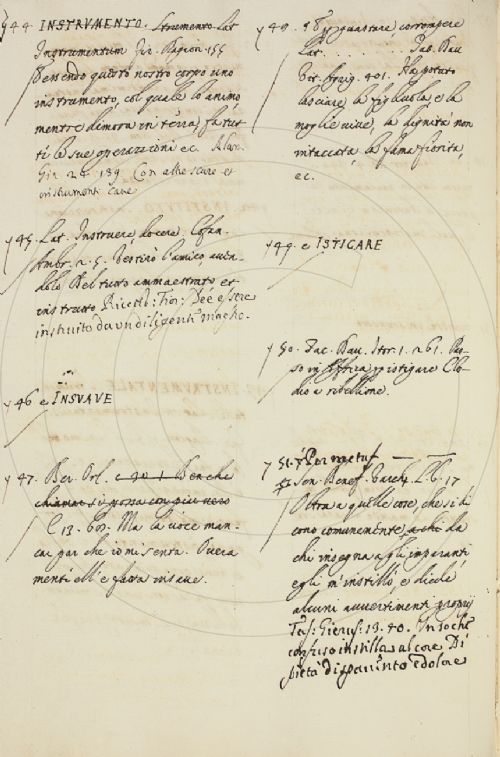 44. INSTRVMENTO. Strumento Lat.
Instrumentum Fir. Ragion. 155
Essendo questo nostro corpo uno
instrumento, col quale lo animo
mentre dimora in terra, fa tut
ti le sue operazioni ec. Alam.
Gir. 24. 139. Con altre scure et
instrumenti cave
45. Lat. Instruere, docere. Cofan.
Ambr. 2. 5. vestirò l'amico, aven
dolo del tutto ammaestrato et
instrutto Ricett: Fior: Dee essere
instruito da un diligente
46 e INSVAVE
47. Ber. Orl.
C 13. 60. Ma la voce man
car par che io mi senta. Overa
menti ell'e fatta insuave.
49. guastare corrompere
Lat. . . . . . . Dav.
401. Ha potuto
lasciare la figliuola, e la
moglie vive, la dignità non
intaccata, la fama fiorita,
ec.
49. e ISTIGARE
50. Tac. Dav. Stor. 1. 261. Pa-
so in Affrica p istigare Clo-
dio a ribellione.
51. Per metaf
Sen. Benef. Varch. L. 6. 17
Oltra a quelle cose, che si di
cono comunemente, a chi da
chi insegna agli imparanti
egli m'instillò, e diede
alcuni avvertimenti proprij
Tass: Gierus: 19. 40. Un so che
confuso instilla al core Di
pietà di spavento e dolore